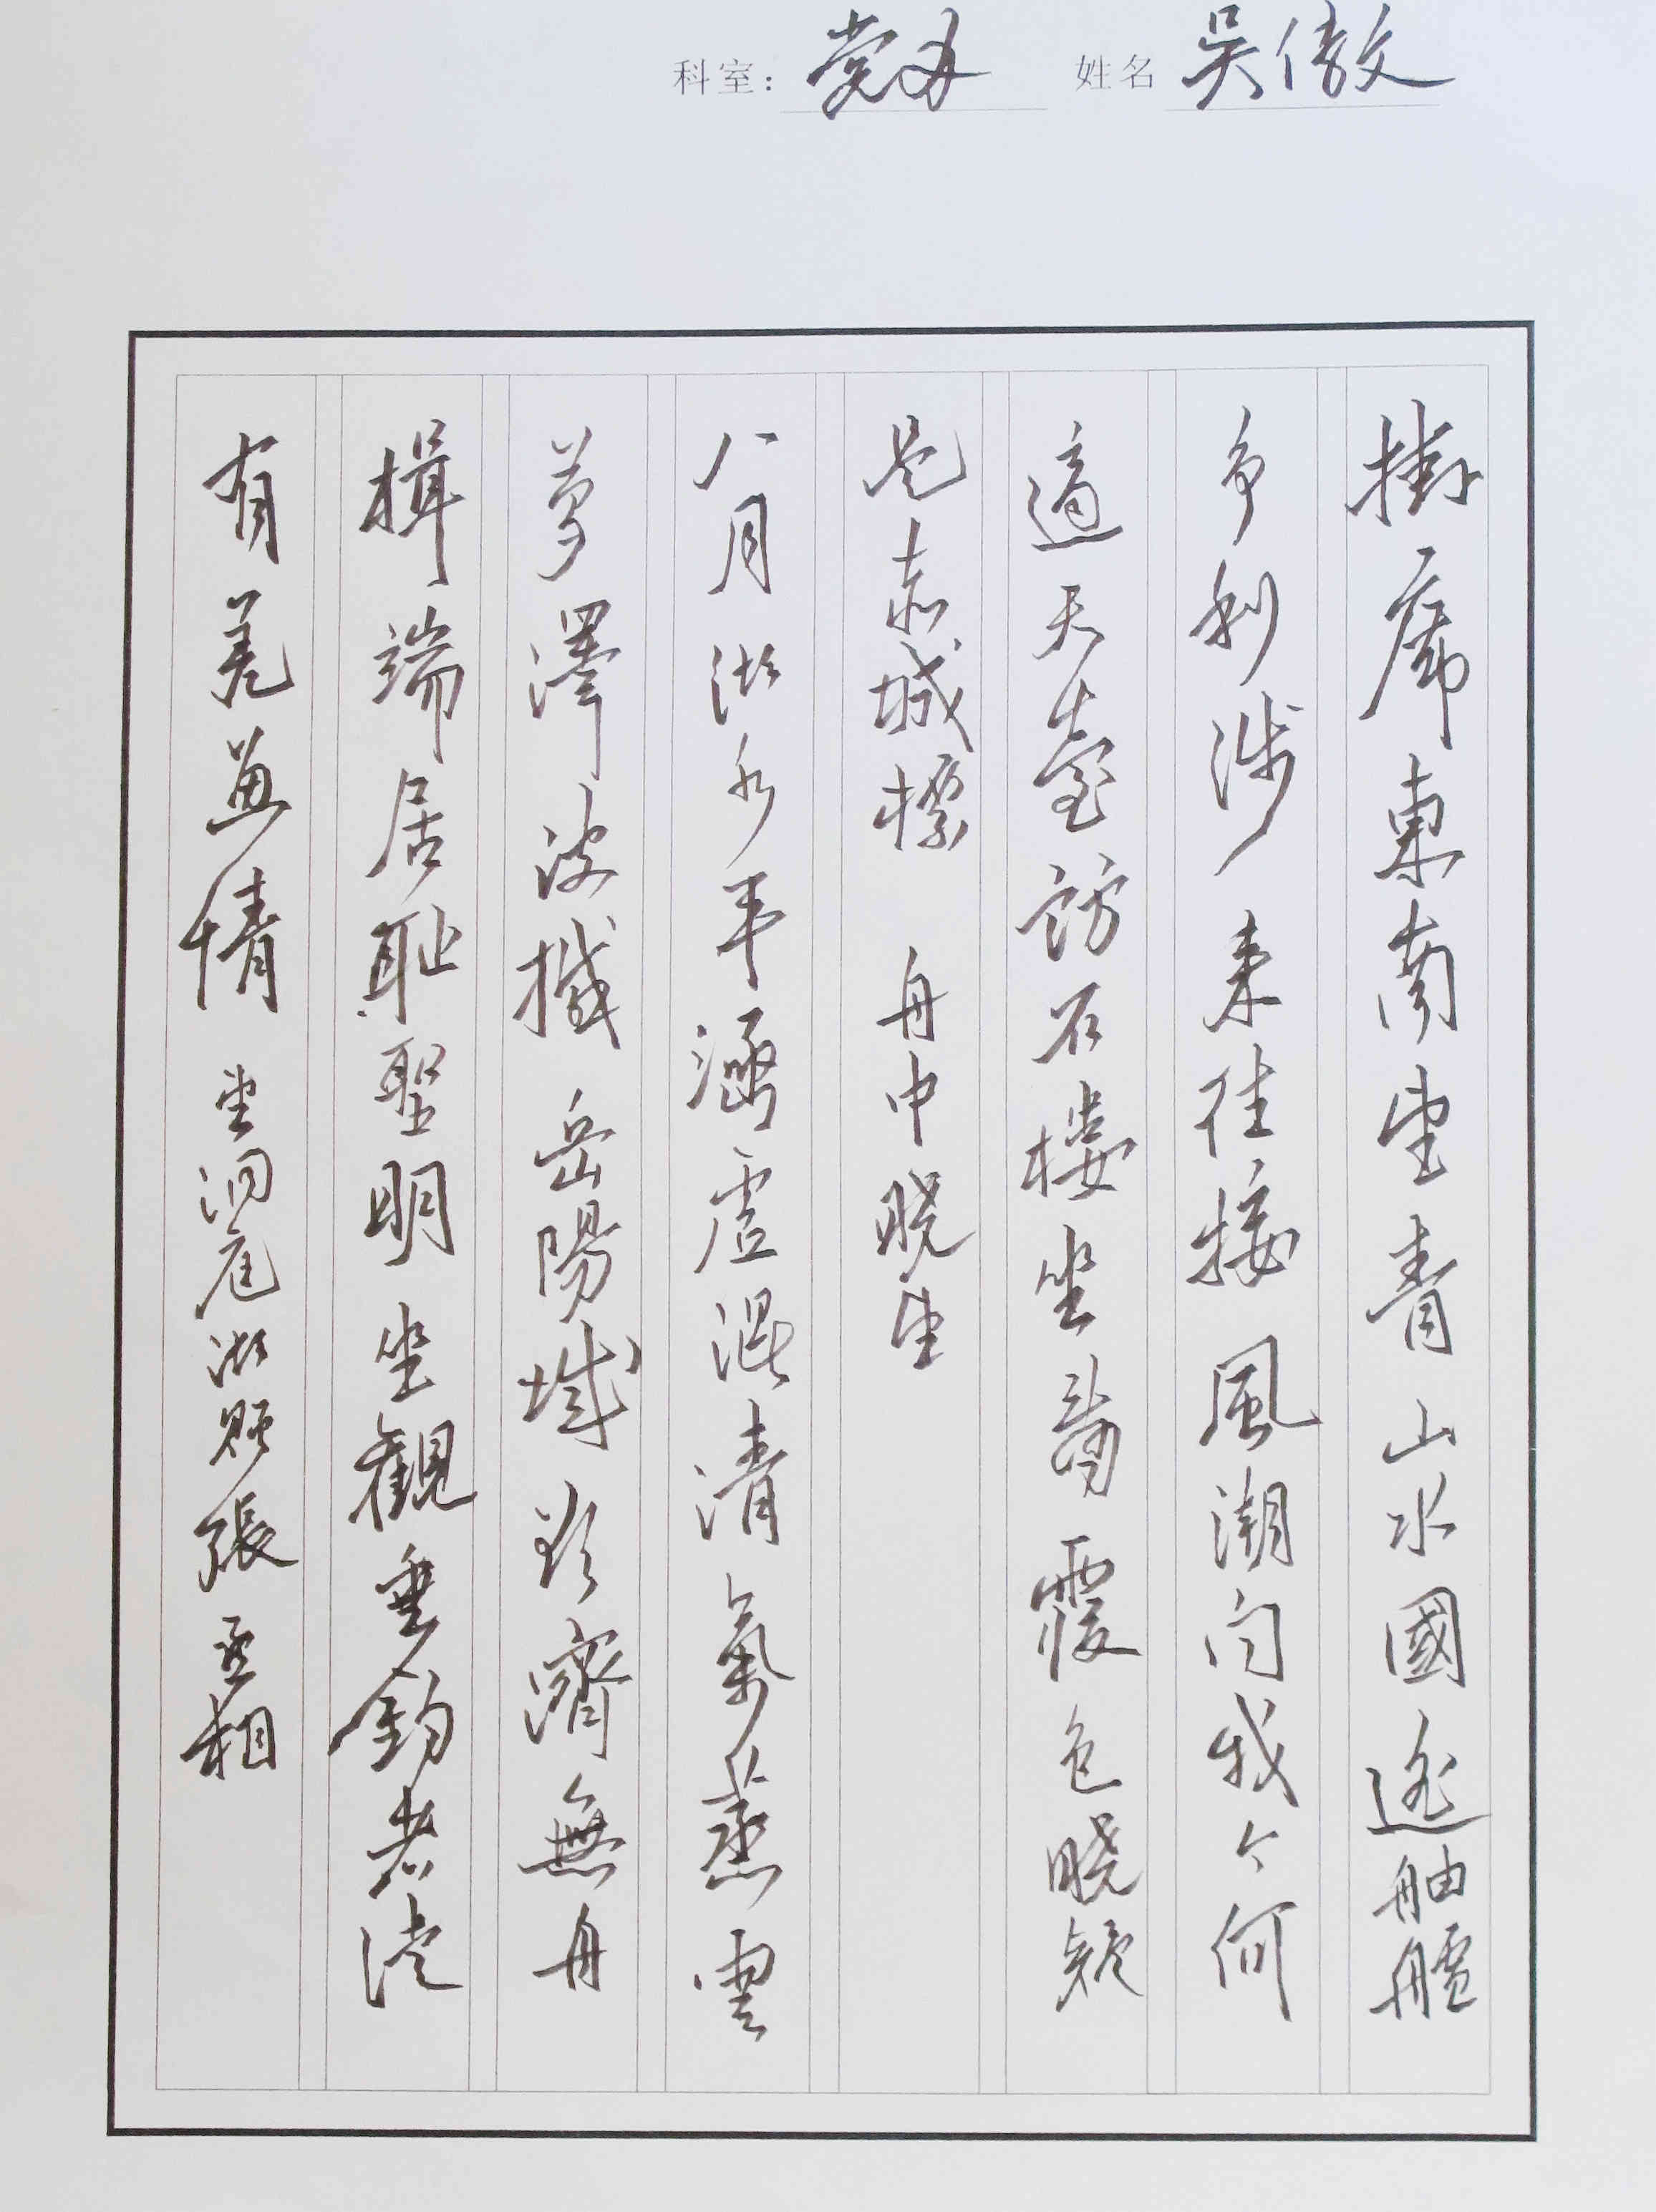 科室：党办 姓名 吴傲文
掛席東南望青山水國遙舳艫
争利涉来往接風潮问我今何
適天臺訪石樓坐看霞色曉疑
是赤城標 舟中曉望
八月湖水平涵虛混清氣蒸雲
夢澤波撼岳陽城欲濟無舟
楫端居恥聖明坐觀垂釣者徒
有羨魚情 望洞庭湖贈張丞相